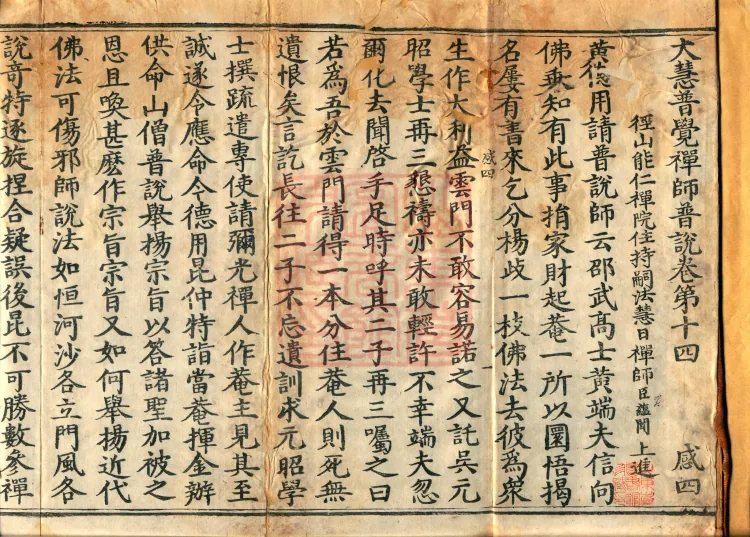 大慧普覺禪師普說卷第十四 感四
徑山能仁禪院住持嗣法慧日禪師臣蘊聞上進
黃德用請普說師云邵武高士黃端夫信向
佛乘知有此事捐家財起菴一所以圜悟揭
名屢有書來乞分楊歧一枝佛法去彼爲衆
感四
生作大利益雲門不敢容易諾之又託吳元
昭學士再三懇禱亦未敢輕許不幸端夫忽
爾化去聞啓手足時呼其二子再三囑之曰
若爲吾於雲門請得一本分住菴人則死無
遺恨矣言訖長往二子不忘遺訓求元昭學
士撰疏遣專使請彌光禪人作菴主見其至
誠遂令應命今德用昆仲特詣當菴揮金辦
供命山僧普說舉揚宗旨以答諸聖加被之
恩且喚甚麽作宗旨宗旨又如何舉揚近代
佛法可傷邪師說法如恒河沙各立門風各
說竒特逐旋捏合疑誤後昆不可勝數參禪